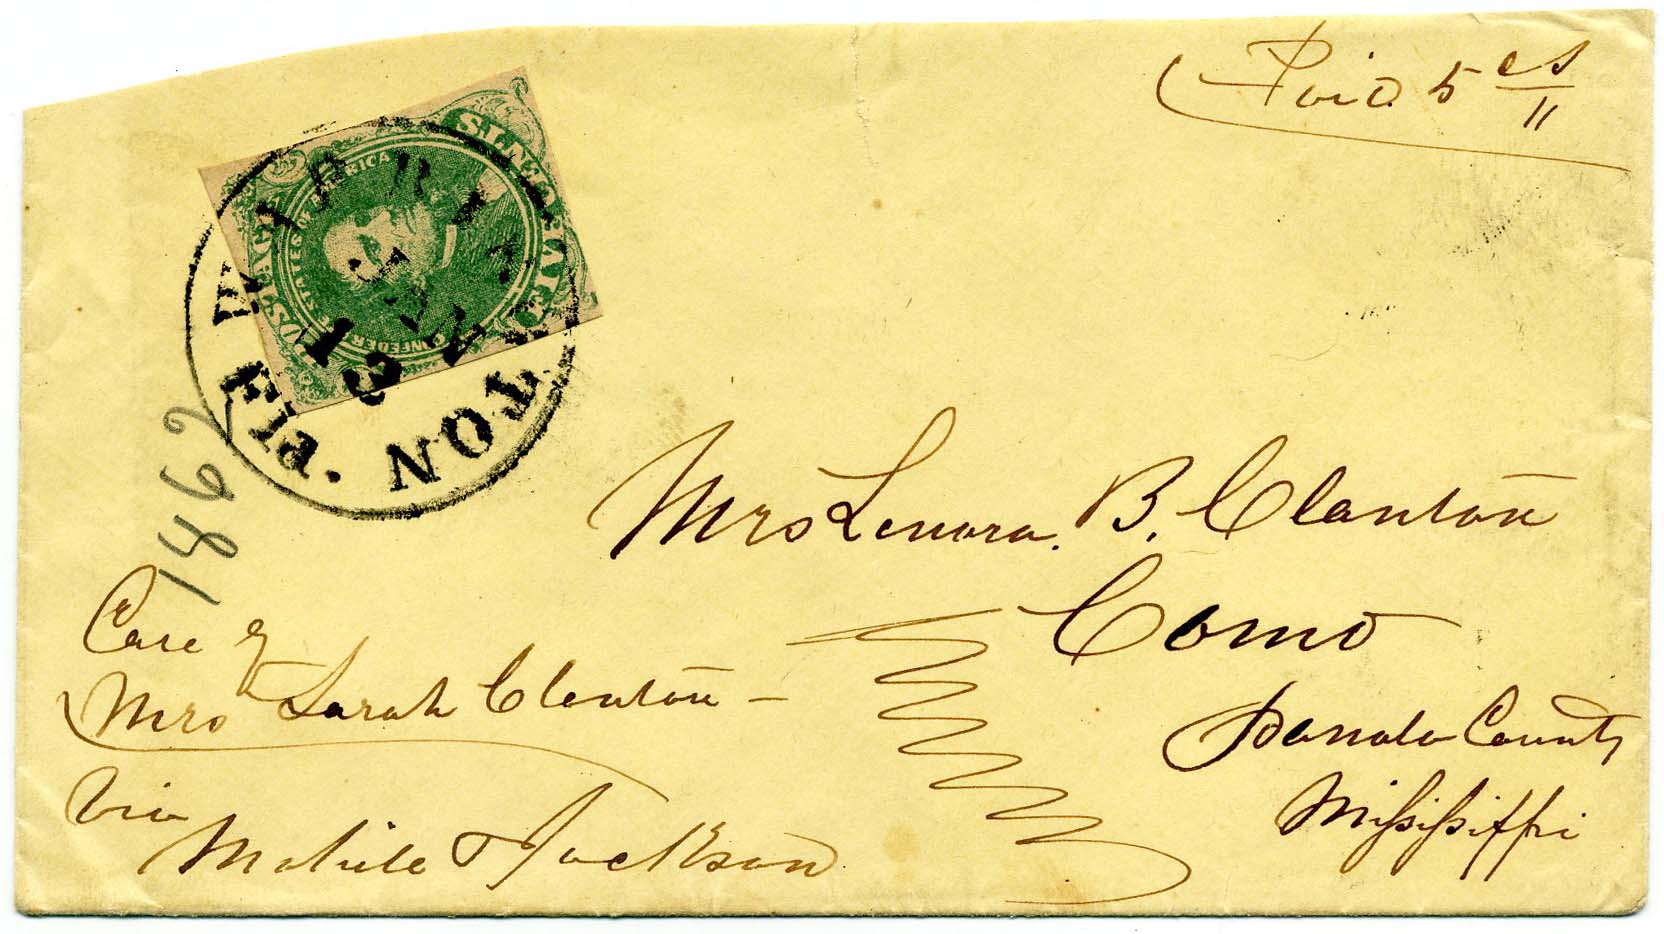 Paid. 5 cts
11
POSTAGE
CONFEDERATE STATES OF AMERICA
FIVE CENTS
WARRINGTON · FLE
JAN
13
1862
Mrs Lenora. B. Clanton
Como
Panola County
Mississippi
Care of
Mrs Sarah Clanton –
Via
Mobile & Jackson